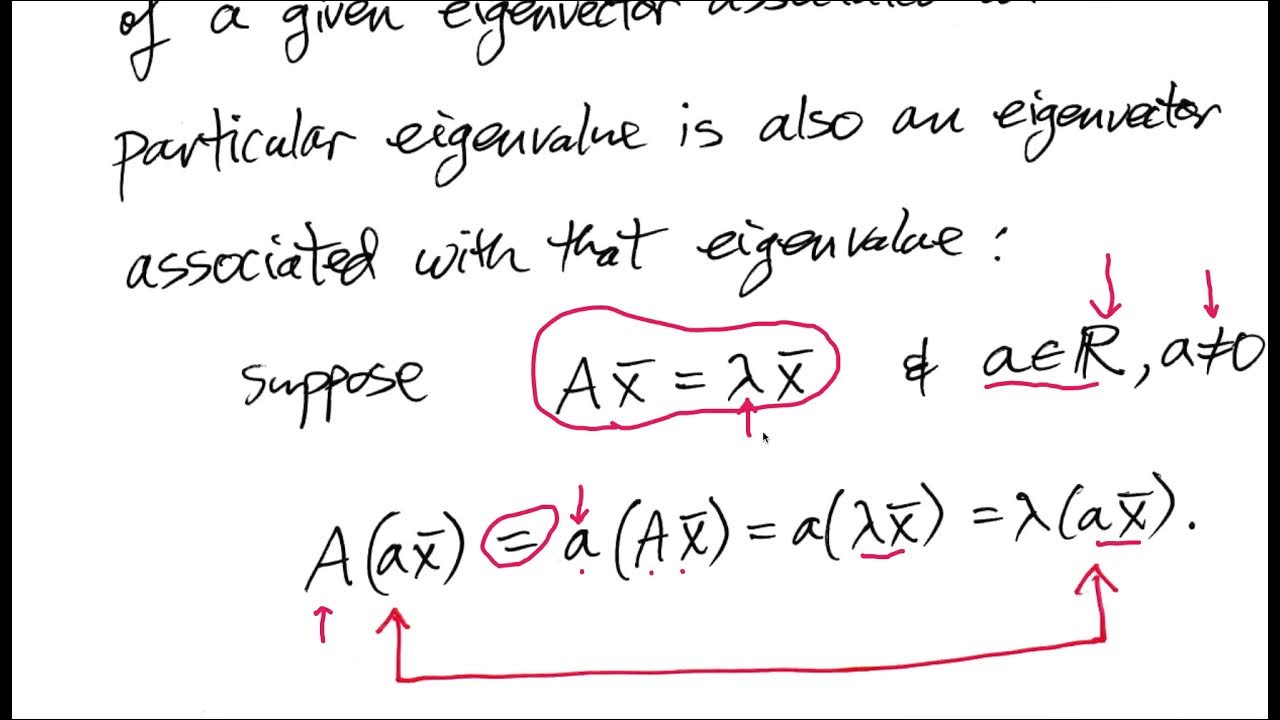 of a given eigenvector associated
particular eigenvalue is also an eigenvector
associated with that eigenvalue :
suppose A x̄ = λ x̄ & a∈ℝ, a≠0
A(ax̄) = a(Ax̄) = a(λx̄) = λ(ax̄).